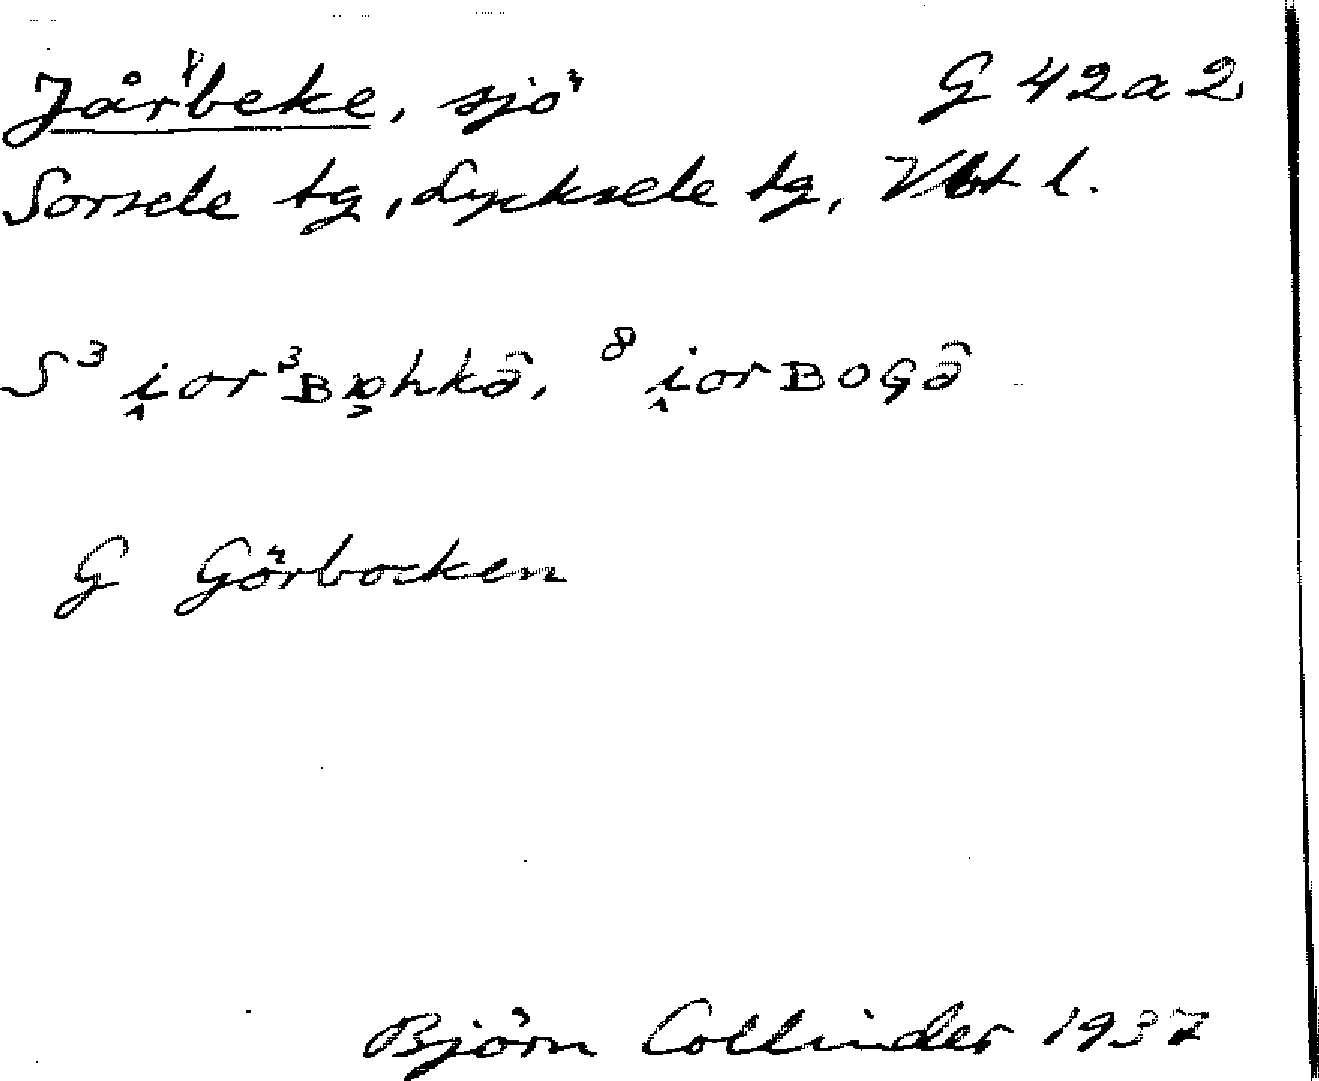 Jår'beke, sjö G 42a2
Sorsele tg, Lycksele tg, Vbt l.
S ³i̭or³ʙo̧hkâ, ⁸i̭orʙoɢâ
G Görbocken
Björn Collinder 1937